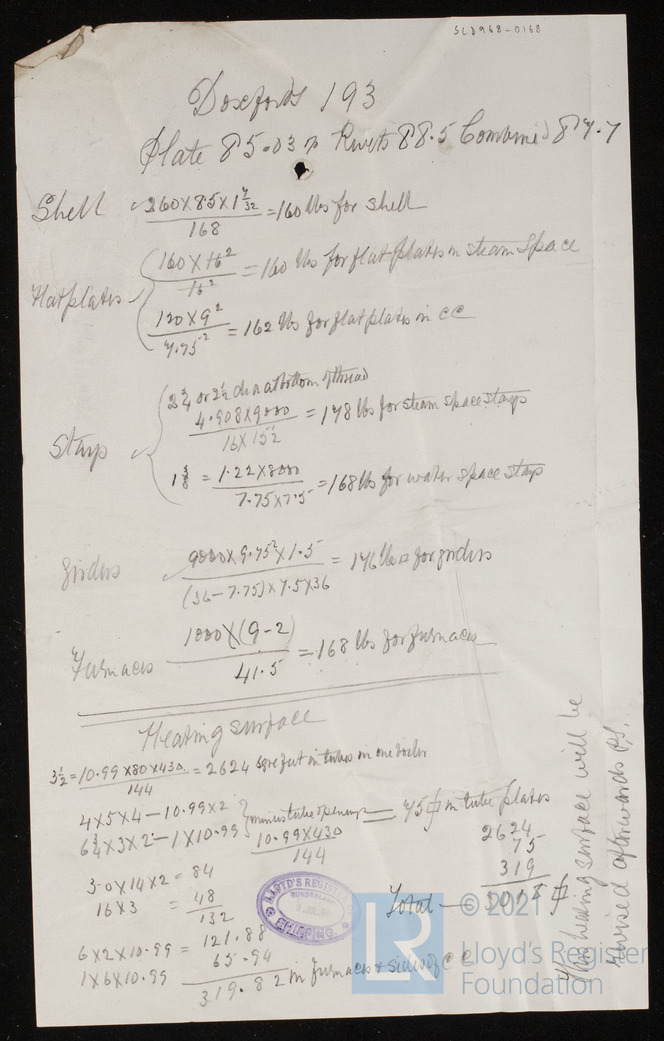 SLD968-0168
Doxfords 193
Plate 85.03 Rivets 88.5 Combined 87.7
Shell 260 x 85 x 1 7/32 / 168 = 160 lbs for shell
Flat plates 160 x 16² / 16² = 160 lbs for flat plates in steam space
120 x 9² / 7.75² = 162 lbs for flat plates in CC
Stays 2 3/4 or 2 1/2 dia at bottom of thread
4.908 x 9000 / 16 x 15 1/2 = 178 lbs for steam space stays
1 3/8 = 1.22 x 8000 / 7.75 x 7.5 = 168 lbs for water space stays
Girders 9000 x 9.75² x 1.5 / (36 - 7.75) x 7.5 x 36 = 176 lbs for girders
Furnaces 1000 x (9-2) / 41.5 = 168 lbs for furnaces
Heating surface
3 1/2 = 10.99 x 80 x 430 / 144 = 2624 sqre feet in tubes in one boiler
4 x 5 x 4 - 10.99 x 2
6 3/4 x 3 x 2 - 1 x 10.99 } minus tube openings 10.99 x 430 / 144 = 75 in tube plates
3.0 x 14 x 2 = 84
16 x 3 = 48
132
6 x 2 x 10.99 = 121.88
1 x 6 x 10.99 65.94
319.82 in furnaces & sides of CC
2624
75
319
Total 3018
This heating surface will be
revised afterwards
LLOYD'S REGISTER
SUNDERLAND
SHIPPING.
© 2021
LR
Lloyd's Register
Foundation